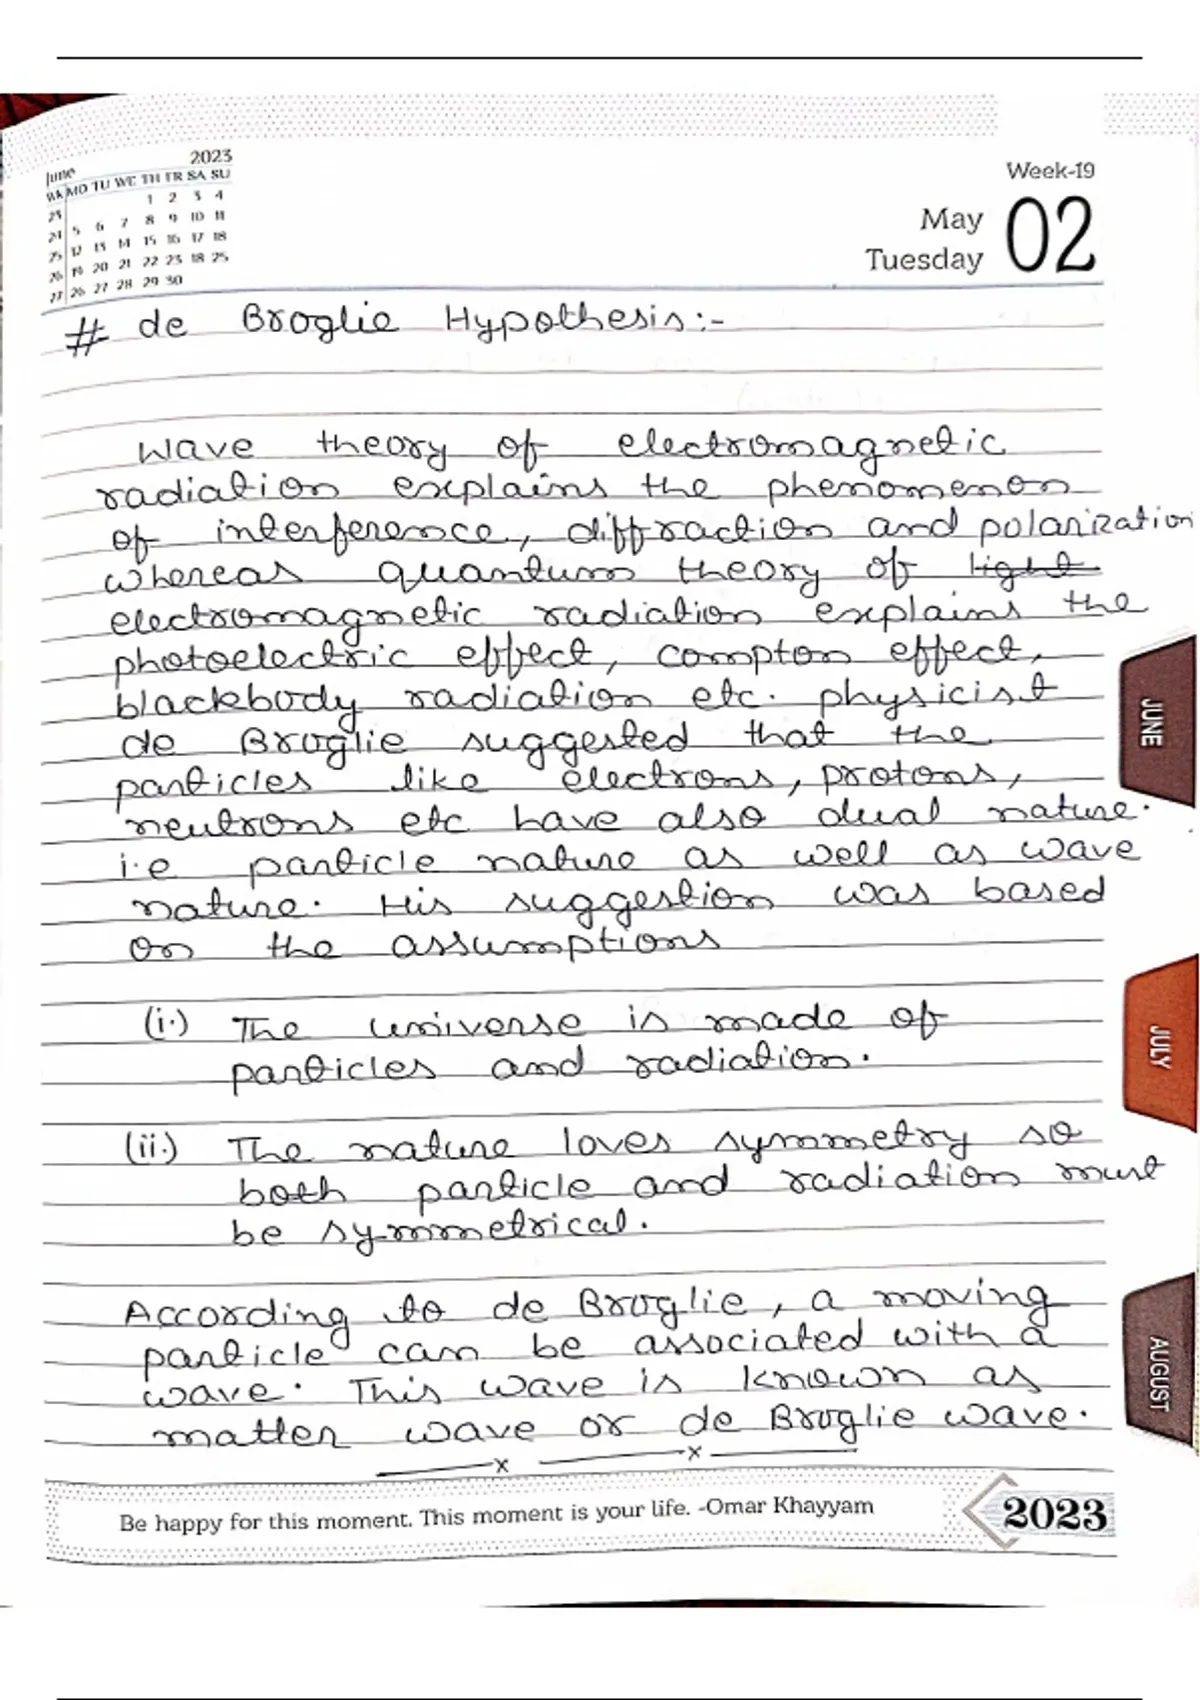 June 2023
WK MO TU WE TH FR SA SU
23 1 2 3 4
24 5 6 7 8 9 10 11
25 12 13 14 15 16 17 18
26 19 20 21 22 23 18 25
27 26 27 28 29 30
Week-19
May 02
Tuesday
# de Broglie Hypothesis:-
Wave theory of electromagnetic
radiation explains the phenomenon
of interference, diffraction and polarization
whereas quantum theory of light
electromagnetic radiation explains the
photoelectric effect, compton effect,
blackbody radiation etc. physicist
de Broglie suggested that the
particles like electrons, protons,
neutrons etc have also dual nature.
i.e particle nature as well as wave
nature. His suggestion was based
on the assumptions
(i.) The universe is made of
particles and radiation.
(ii.) The nature loves symmetry so
both particle and radiation must
be symmetrical.
According to de Broglie, a moving
particle can be associated with a
wave. This wave is known as
matter wave or de Broglie wave.
x x
Be happy for this moment. This moment is your life. -Omar Khayyam
2023
JUNE
JULY
AUGUST